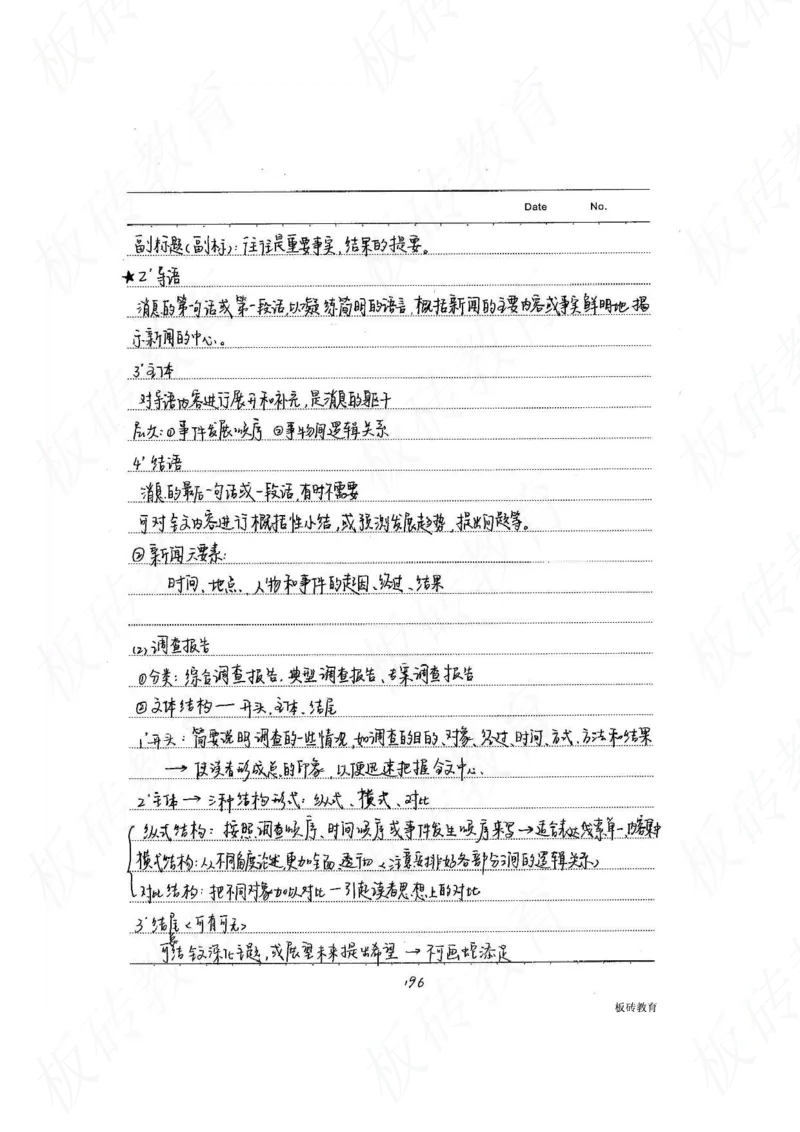 Date No.
副标题(副标):往往是重要事实,结果的提要。
★2'导语
消息的第一句话或第一段话,以凝练简明的语言,概括新闻的主要内容或事实鲜明地揭
示新闻的中心。
3'主体
对导语内容进行展开和补充,是消息的躯干
层次:①事件发展顺序 ②事物间逻辑关系
4'结语
消息的最后一句话或一段话,有时不需要
可对全文内容进行概括性小结,或预测发展趋势,提出问题等。
③新闻六要素:
时间、地点、人物和事件的起因、经过、结果
(2)调查报告
①分类:综合调查报告,典型调查报告、专案调查报告
②文体结构一开头、主体、结尾
1'开头:简要说明调查的一些情况,如调查的目的、对象、经过、时间、方式、方法和结果
→使读者形成总的印象,以便迅速把握全文中心、
2'主体→三种结构形式:纵式、横式、对比
纵式结构:按照调查顺序、时间顺序或事件发生顺序来写→适合表达线索单一,内容集中
横式结构:从不同角度论述,更加全面、透彻<注意安排好各部分之间的逻辑关系>
对比结构:把不同对象加以对比一引起读者思想上的对比
3'结尾<可有可无>
可总结全文深化主题,或展望未来提出希望→不可画蛇添足
196
板砖教育